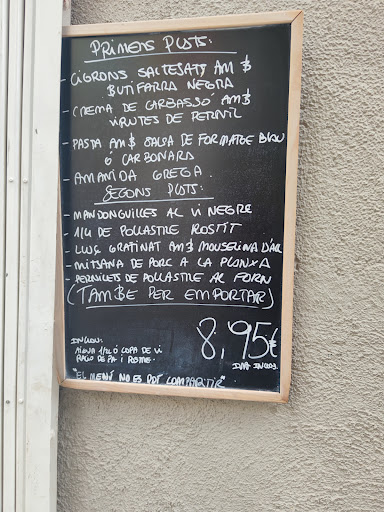 PRIMERS PLATS:
- CIGRONS SALTEJATS AMB
BUTIFARRA NEGRA
- CREMA DE CARBASSÓ AMB
VIRUTES DE PERNIL
- PASTA AMB SALSA DE FORMATGE BLAU
O CARBONARA
- AMANIDA GREGA.
SEGONS PLATS:
- MANDONGUILLES AL VI NEGRE
- 1/4 DE POLLASTRE ROSTIT
- LLUÇ GRATINAT AMB MOUSELINA D'ALL
- MITJANA DE PORC A LA PLANXA
- PERNILETS DE POLLASTRE AL FORN
(TAMBE PER EMPORTAR)
8,95€
IVA INCLOS.
INCLOU:
AIGUA 1/2L Ó COPA DE VI
PA I POSTRE.
"EL MENÚ NO ES POT COMPARTIR"